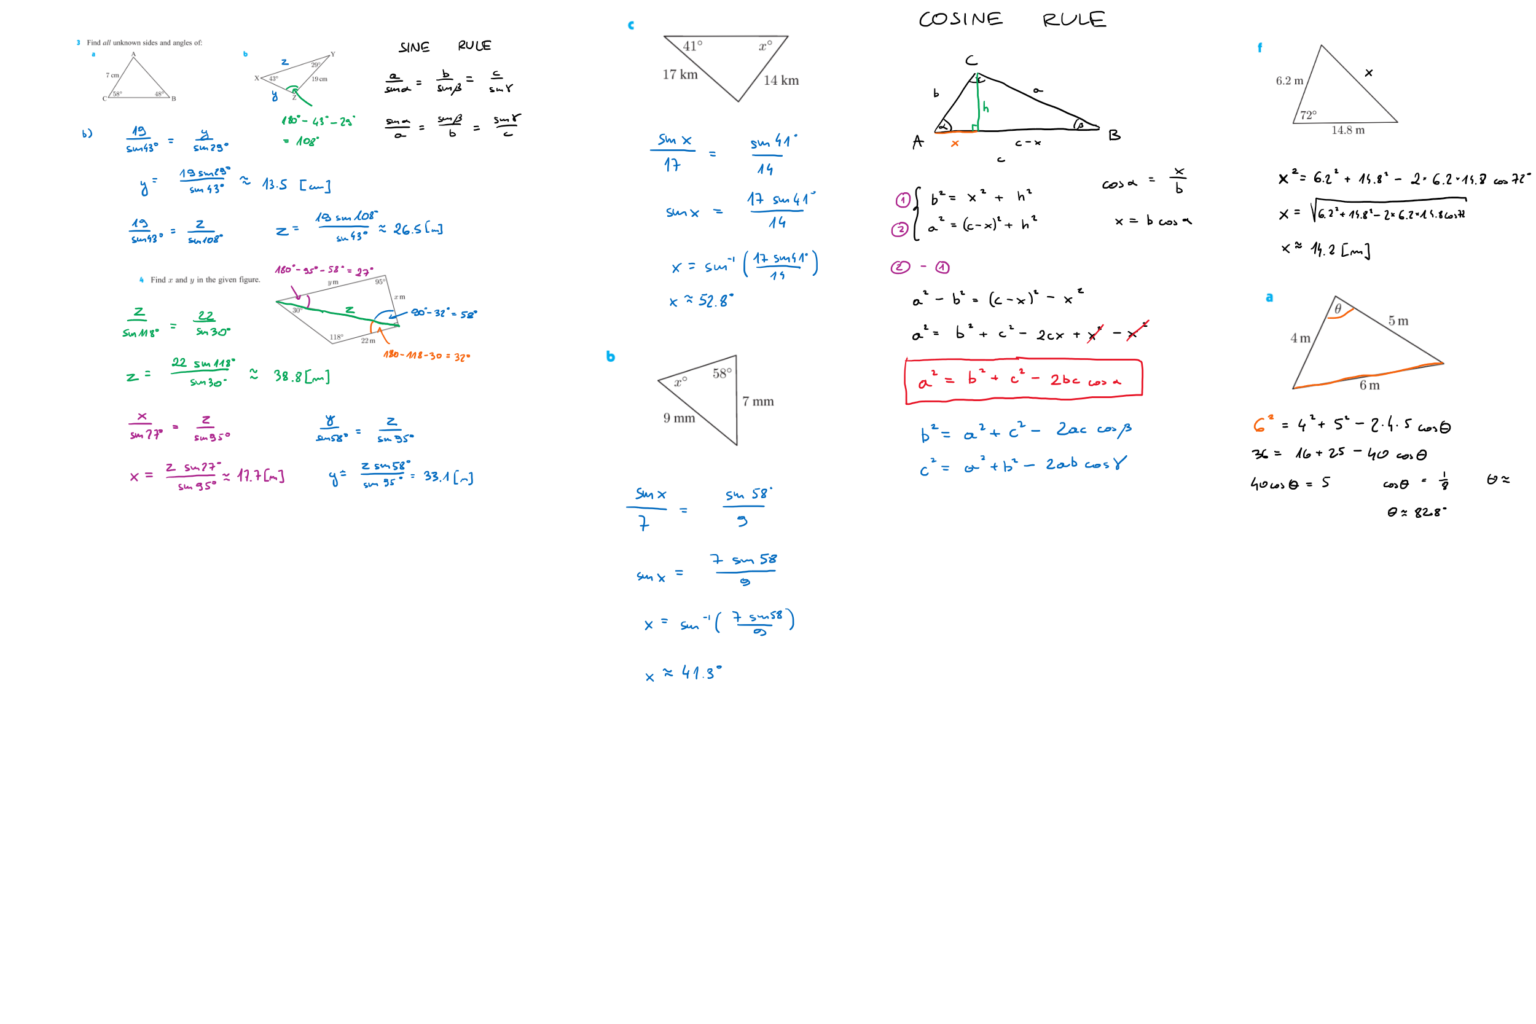 3 Find all unknown sides and angles of:
a
A
7 cm
58°
48°
C
B
b
Y
z
29°
X
43°
19 cm
y
Z
180° - 43° - 29°
= 108°
SINE RULE
a/sinα = b/sinβ = c/sinγ
sinα/a = sinβ/b = sinγ/c
b)
19/sin43° = y/sin29°
y = 19 sin29°/sin43° ≈ 13.5 [cm]
19/sin43° = z/sin108°
z = 19 sin108°/sin43° ≈ 26.5 [m]
4 Find x and y in the given figure.
180° - 95° - 58° = 27°
y m
95°
x m
30°
z
90° - 32° = 58°
118°
22 m
180 - 118 - 30 = 32°
z/sin118° = 22/sin30°
z = 22 sin118°/sin30° ≈ 38.8 [m]
x/sin27° = z/sin95°
x = z sin27°/sin95° ≈ 17.7 [m]
y/sin58° = z/sin95°
y = z sin58°/sin95° = 33.1 [m]
c
41°
x°
17 km
14 km
sin x/17 = sin 41°/14
sin x = 17 sin 41°/14
x = sin⁻¹(17 sin41°/14)
x ≈ 52.8°
b
58°
x°
7 mm
9 mm
sin x/7 = sin 58°/9
sin x = 7 sin 58/9
x = sin⁻¹(7 sin58/9)
x ≈ 41.3°
COSINE RULE
C
b
a
h
α
β
A
B
x
c-x
c
cosα = x/b
x = b cosα
① b² = x² + h²
② a² = (c-x)² + h²
② - ①
a² - b² = (c-x)² - x²
a² = b² + c² - 2cx + x² - x²
a² = b² + c² - 2bc cosα
b² = a² + c² - 2ac cosβ
c² = a² + b² - 2ab cosγ
f
6.2 m
x
72°
14.8 m
x² = 6.2² + 14.8² - 2×6.2×14.8 cos72°
x = √6.2² + 14.8² - 2×6.2×14.8cos72
x ≈ 14.2 [m]
a
θ
4 m
5 m
6 m
6² = 4² + 5² - 2·4·5 cosθ
36 = 16 + 25 - 40 cosθ
40cosθ = 5 cosθ = 1/8 θ ≈
θ ≈ 82.8°